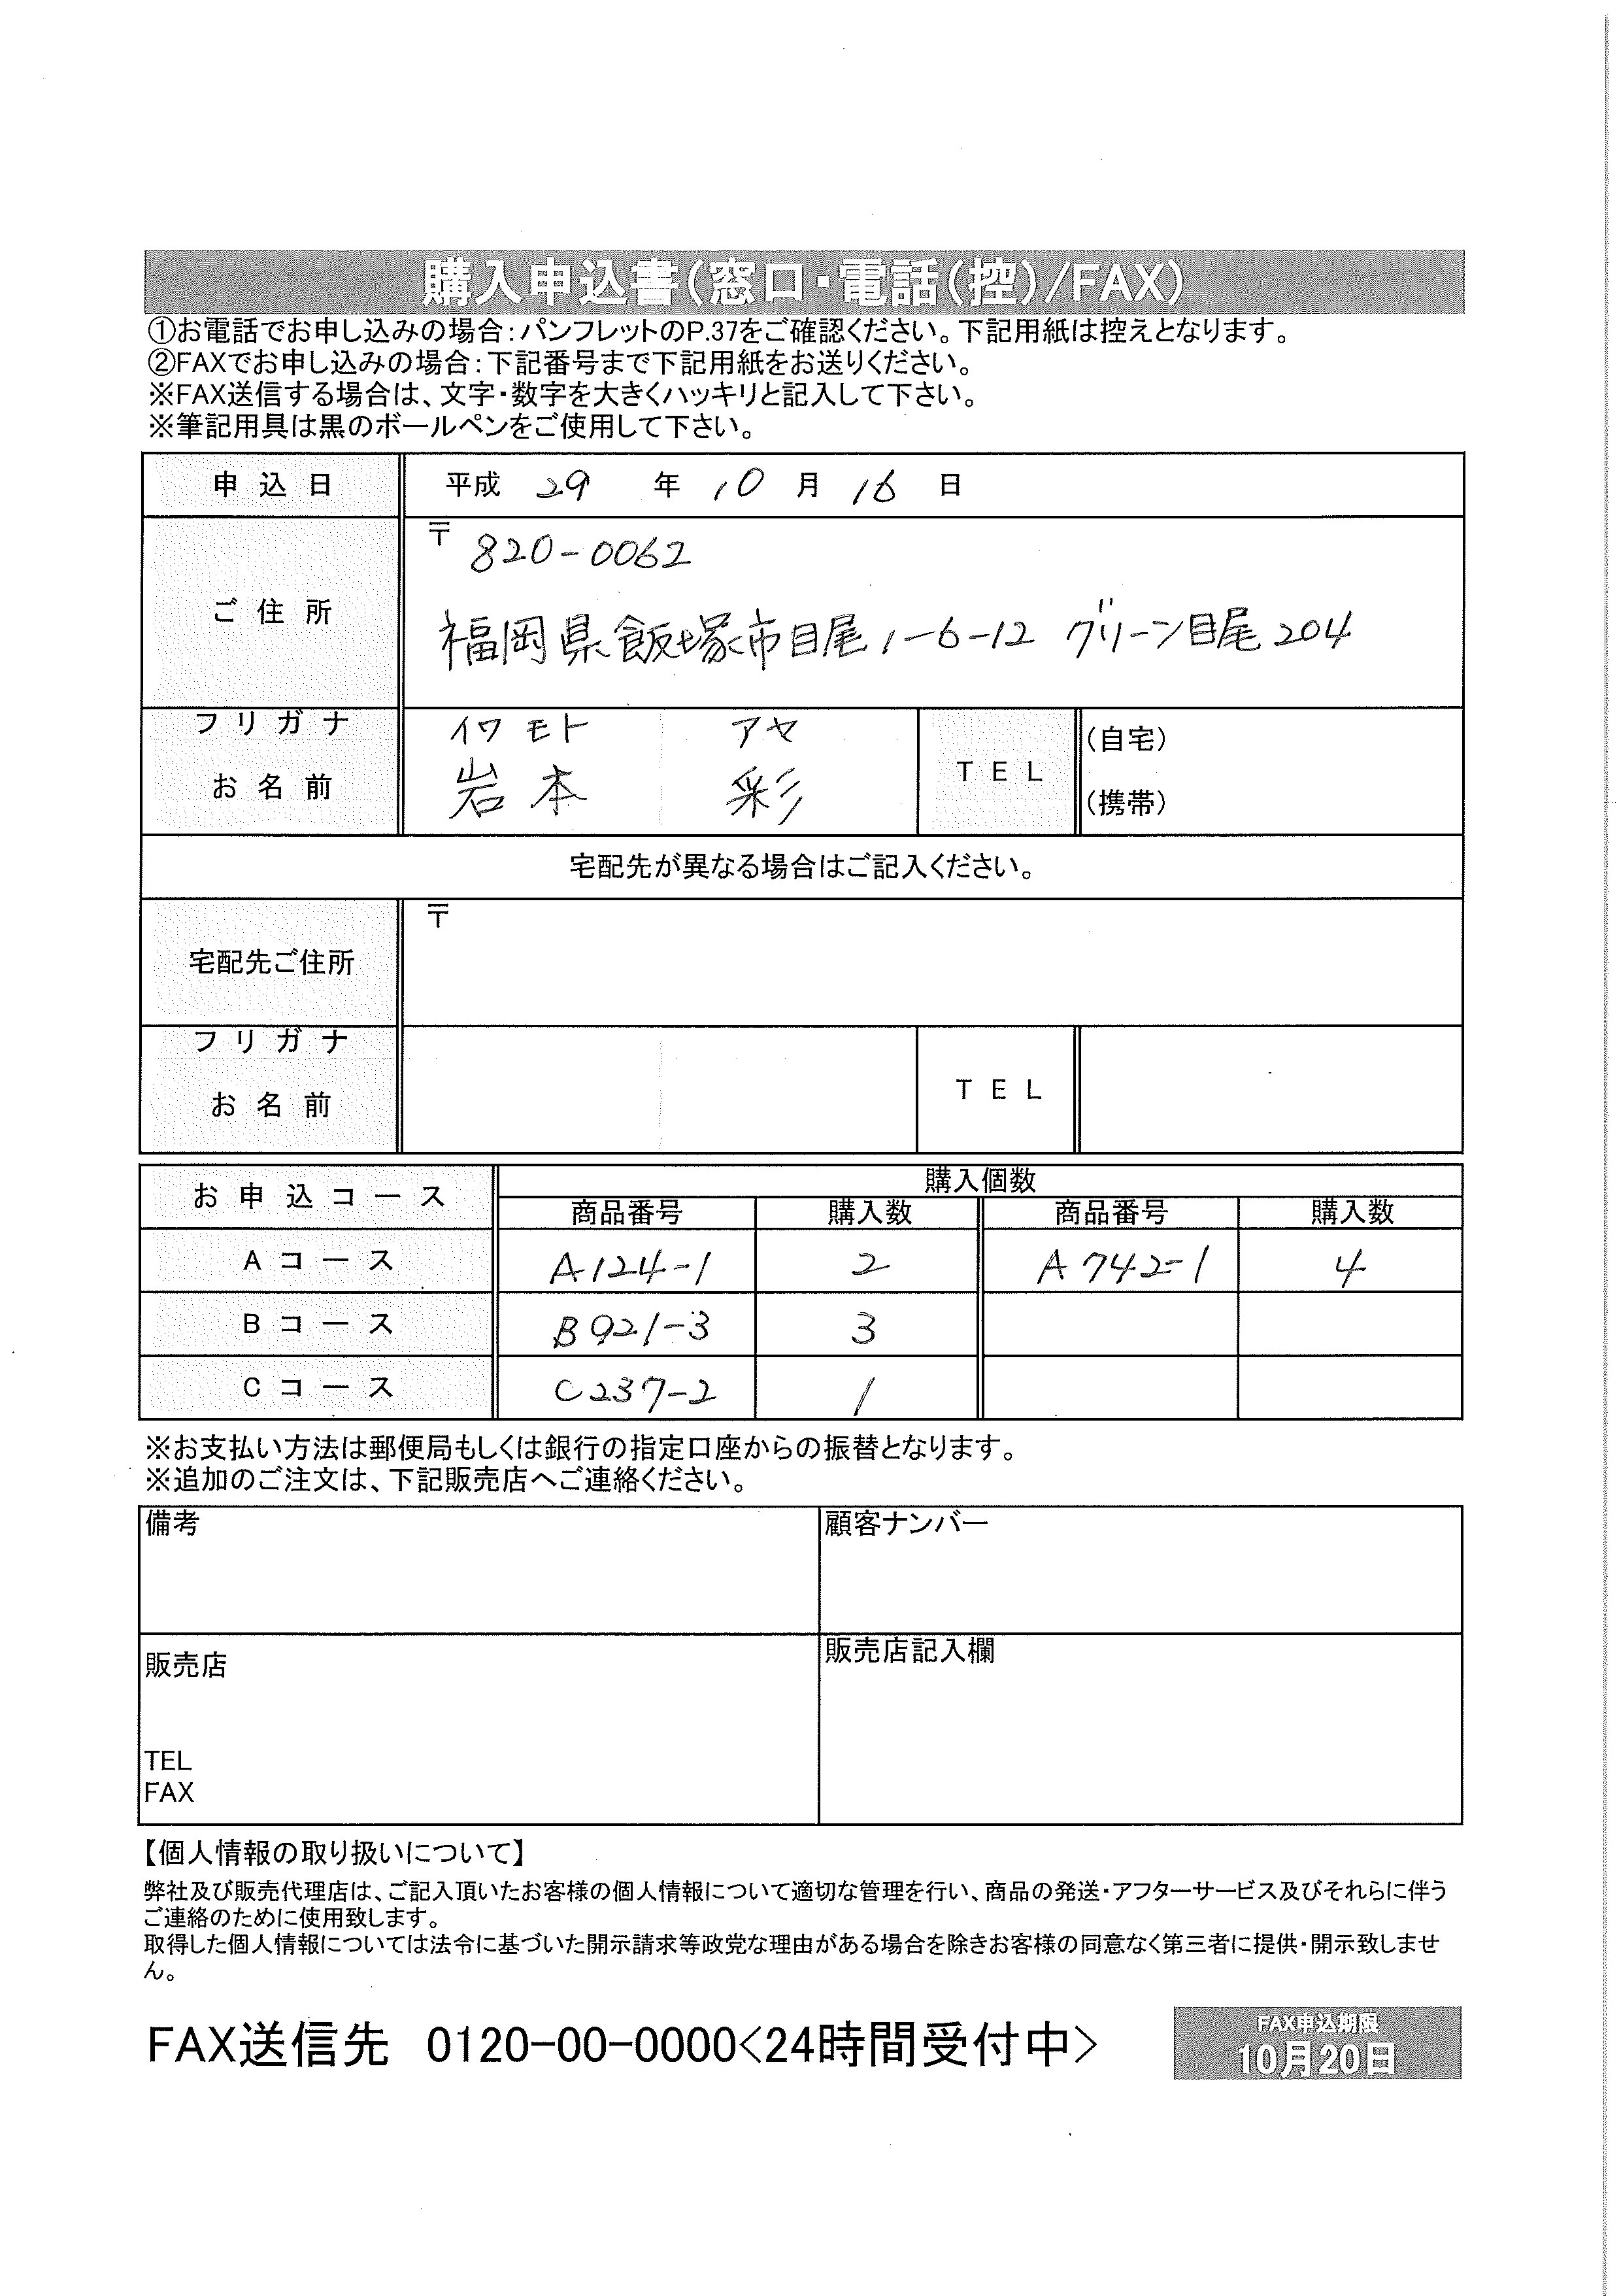 購入申込書(窓口・電話(控)/FAX)
①お電話でお申し込みの場合:パンフレットのP.37をご確認ください。下記用紙は控えとなります。
②FAXでお申し込みの場合:下記番号まで下記用紙をお送りください。
※FAX送信する場合は、文字・数字を大きくハッキリと記入して下さい。
※筆記用具は黒のボールペンをご使用して下さい。
申込日 平成 29 年 10 月 16 日
ご住所 〒 820-0062
福岡県飯塚市目尾1-6-12 グリーン目尾204
フリガナ イワモト アヤ
お名前 岩本 彩
TEL (自宅)
(携帯)
宅配先が異なる場合はご記入ください。
宅配先ご住所 〒
フリガナ
お名前 TEL
お申込コース 購入個数
商品番号 購入数 商品番号 購入数
Aコース A124-1 2 A742-1 4
Bコース B921-3 3
Cコース C237-2 1
※お支払い方法は郵便局もしくは銀行の指定口座からの振替となります。
※追加のご注文は、下記販売店へご連絡ください。
備考 顧客ナンバー
販売店 販売店記入欄
TEL
FAX
【個人情報の取り扱いについて】
弊社及び販売代理店は、ご記入頂いたお客様の個人情報について適切な管理を行い、商品の発送・アフターサービス及びそれらに伴う
ご連絡のために使用致します。
取得した個人情報については法令に基づいた開示請求等政党な理由がある場合を除きお客様の同意なく第三者に提供・開示致しませ
ん。
FAX送信先 0120-00-0000<24時間受付中>
FAX申込期限
10月20日